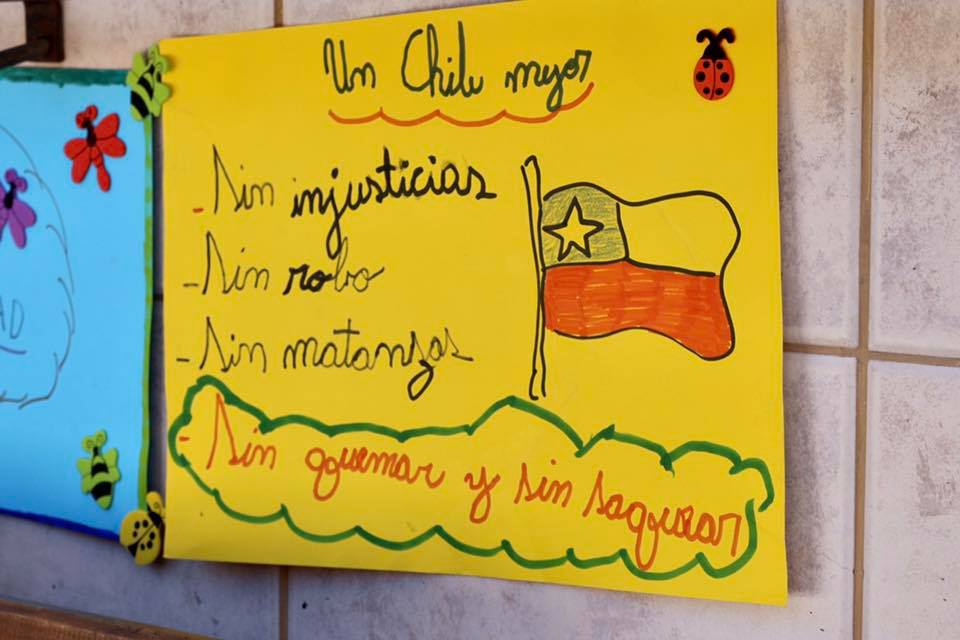 Un Chile mejor
- Sin injusticias
- Sin robo
- Sin matanzas
- Sin quemar y sin saquear
AD